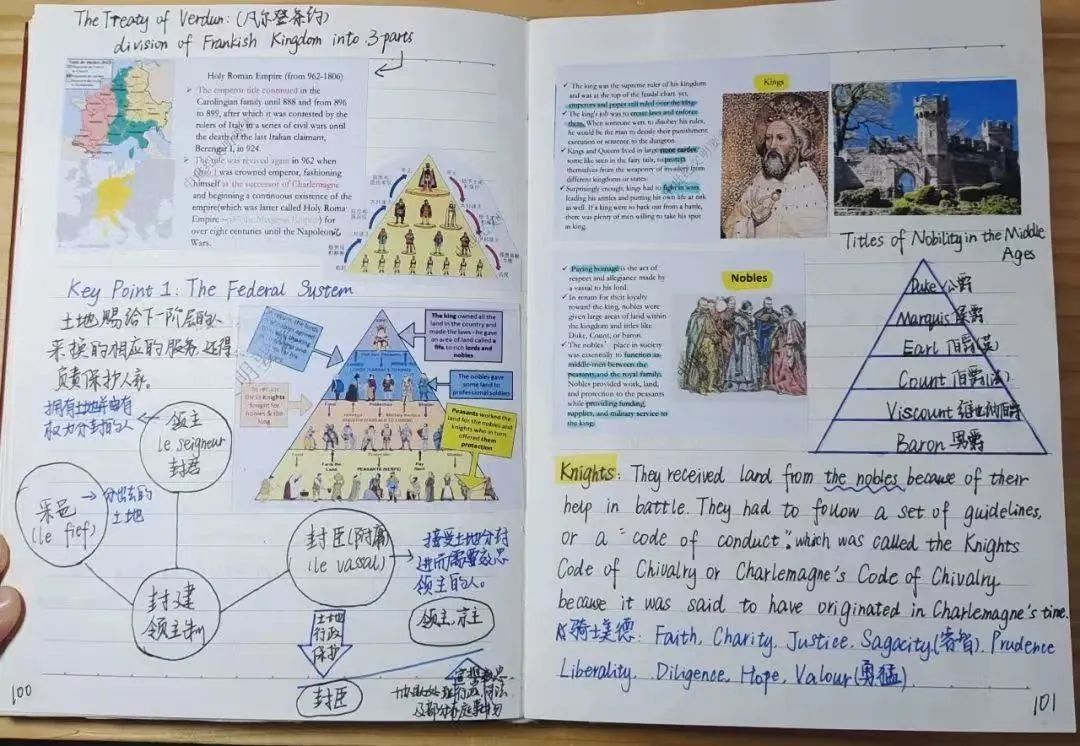 The Treaty of Verdun: (凡尔登条约)
division of Frankish Kingdom into 3 parts
Holy Roman Empire (from 962-1806)
The emperor title continued in the
Carolingian family until 888 and from 896
to 899, after which it was contested by the
rulers of Italy in a series of civil wars until
the death of the last Italian claimant,
Berengar I, in 924.
The title was revived again in 962 when
Otto I was crowned emperor, fashioning
himself as the successor of Charlemagne
and beginning a continuous existence of the
empire(which was later called Holy Roman
Empire
for
over eight centuries until the Napoleonic
Wars.
Key Point 1: The Federal System
土地赐给下一阶层的人
采换的相应的服务,还得
负责保护人家。
拥有土地并由有
权力分封的人
领主
le seigneur
封君
采邑
(le fief)
分出去的
土地
封建
领主制
封臣(附庸)
(le vassal)
接受土地分封
进而需要效忠
领主的人。
领主,宗主
土地
行政
保护
封臣
The king owned all the
land in the country and
made the laws – he gave
an area of land called a
fife to rich lords and
nobles
The nobles gave
some land to
professional soldiers
Peasants worked the
land for the nobles and
knights who in turn
offered them
protection
Knights
fought for
nobles & the
king
PEASANTS (SERFS)
100
Kings
The king was the supreme ruler of his kingdom
and was at the top of the feudal chart, yet,
emperors and popes still ruled over the kings
The king's job was to create laws and enforce
them. When someone went to disobey his rules,
he would be the man to decide their punishment
execution or sentence to the dungeon.
Kings and Queens lived in large stone castles
some like seen in the fairy tails, to protect
themselves from the weaponry of invaders from
different kingdoms or states.
Surprisingly enough, kings had to fight in wars
leading his armies and putting his own life at risk
as well. If a king were to back out from a battle,
there was plenty of men willing to take his spot
as king.
Nobles
Paying homage is the act of
respect and allegiance made by
a vassal to his lord.
In return for their loyalty
toward the king, nobles were
given large areas of land within
the kingdom and titles like
Duke, Count, or baron.
The nobles' place in society
was essentially to function as
middle-men between the
peasants and the royal family.
Nobles provided work, land,
and protection to the peasants
while providing funding,
supplies, and military service to
the king.
Titles of Nobility in the Middle
Ages
Duke 公爵
Marquis 侯爵
Earl 伯爵(英)
Count 伯爵(法)
Viscount
Baron 男爵
Knights: They received land from the nobles because of their
help in battle. They had to follow a set of guidelines,
or a "code of conduct", which was called the Knights
Code of Chivalry or Charlemagne's Code of Chivalry
because it was said to have originated in Charlemagne's time.
骑士美德: Faith, Charity, Justice, Sagacity(睿智), Prudence
Liberality, Diligence, Hope, Valour(勇猛)
101